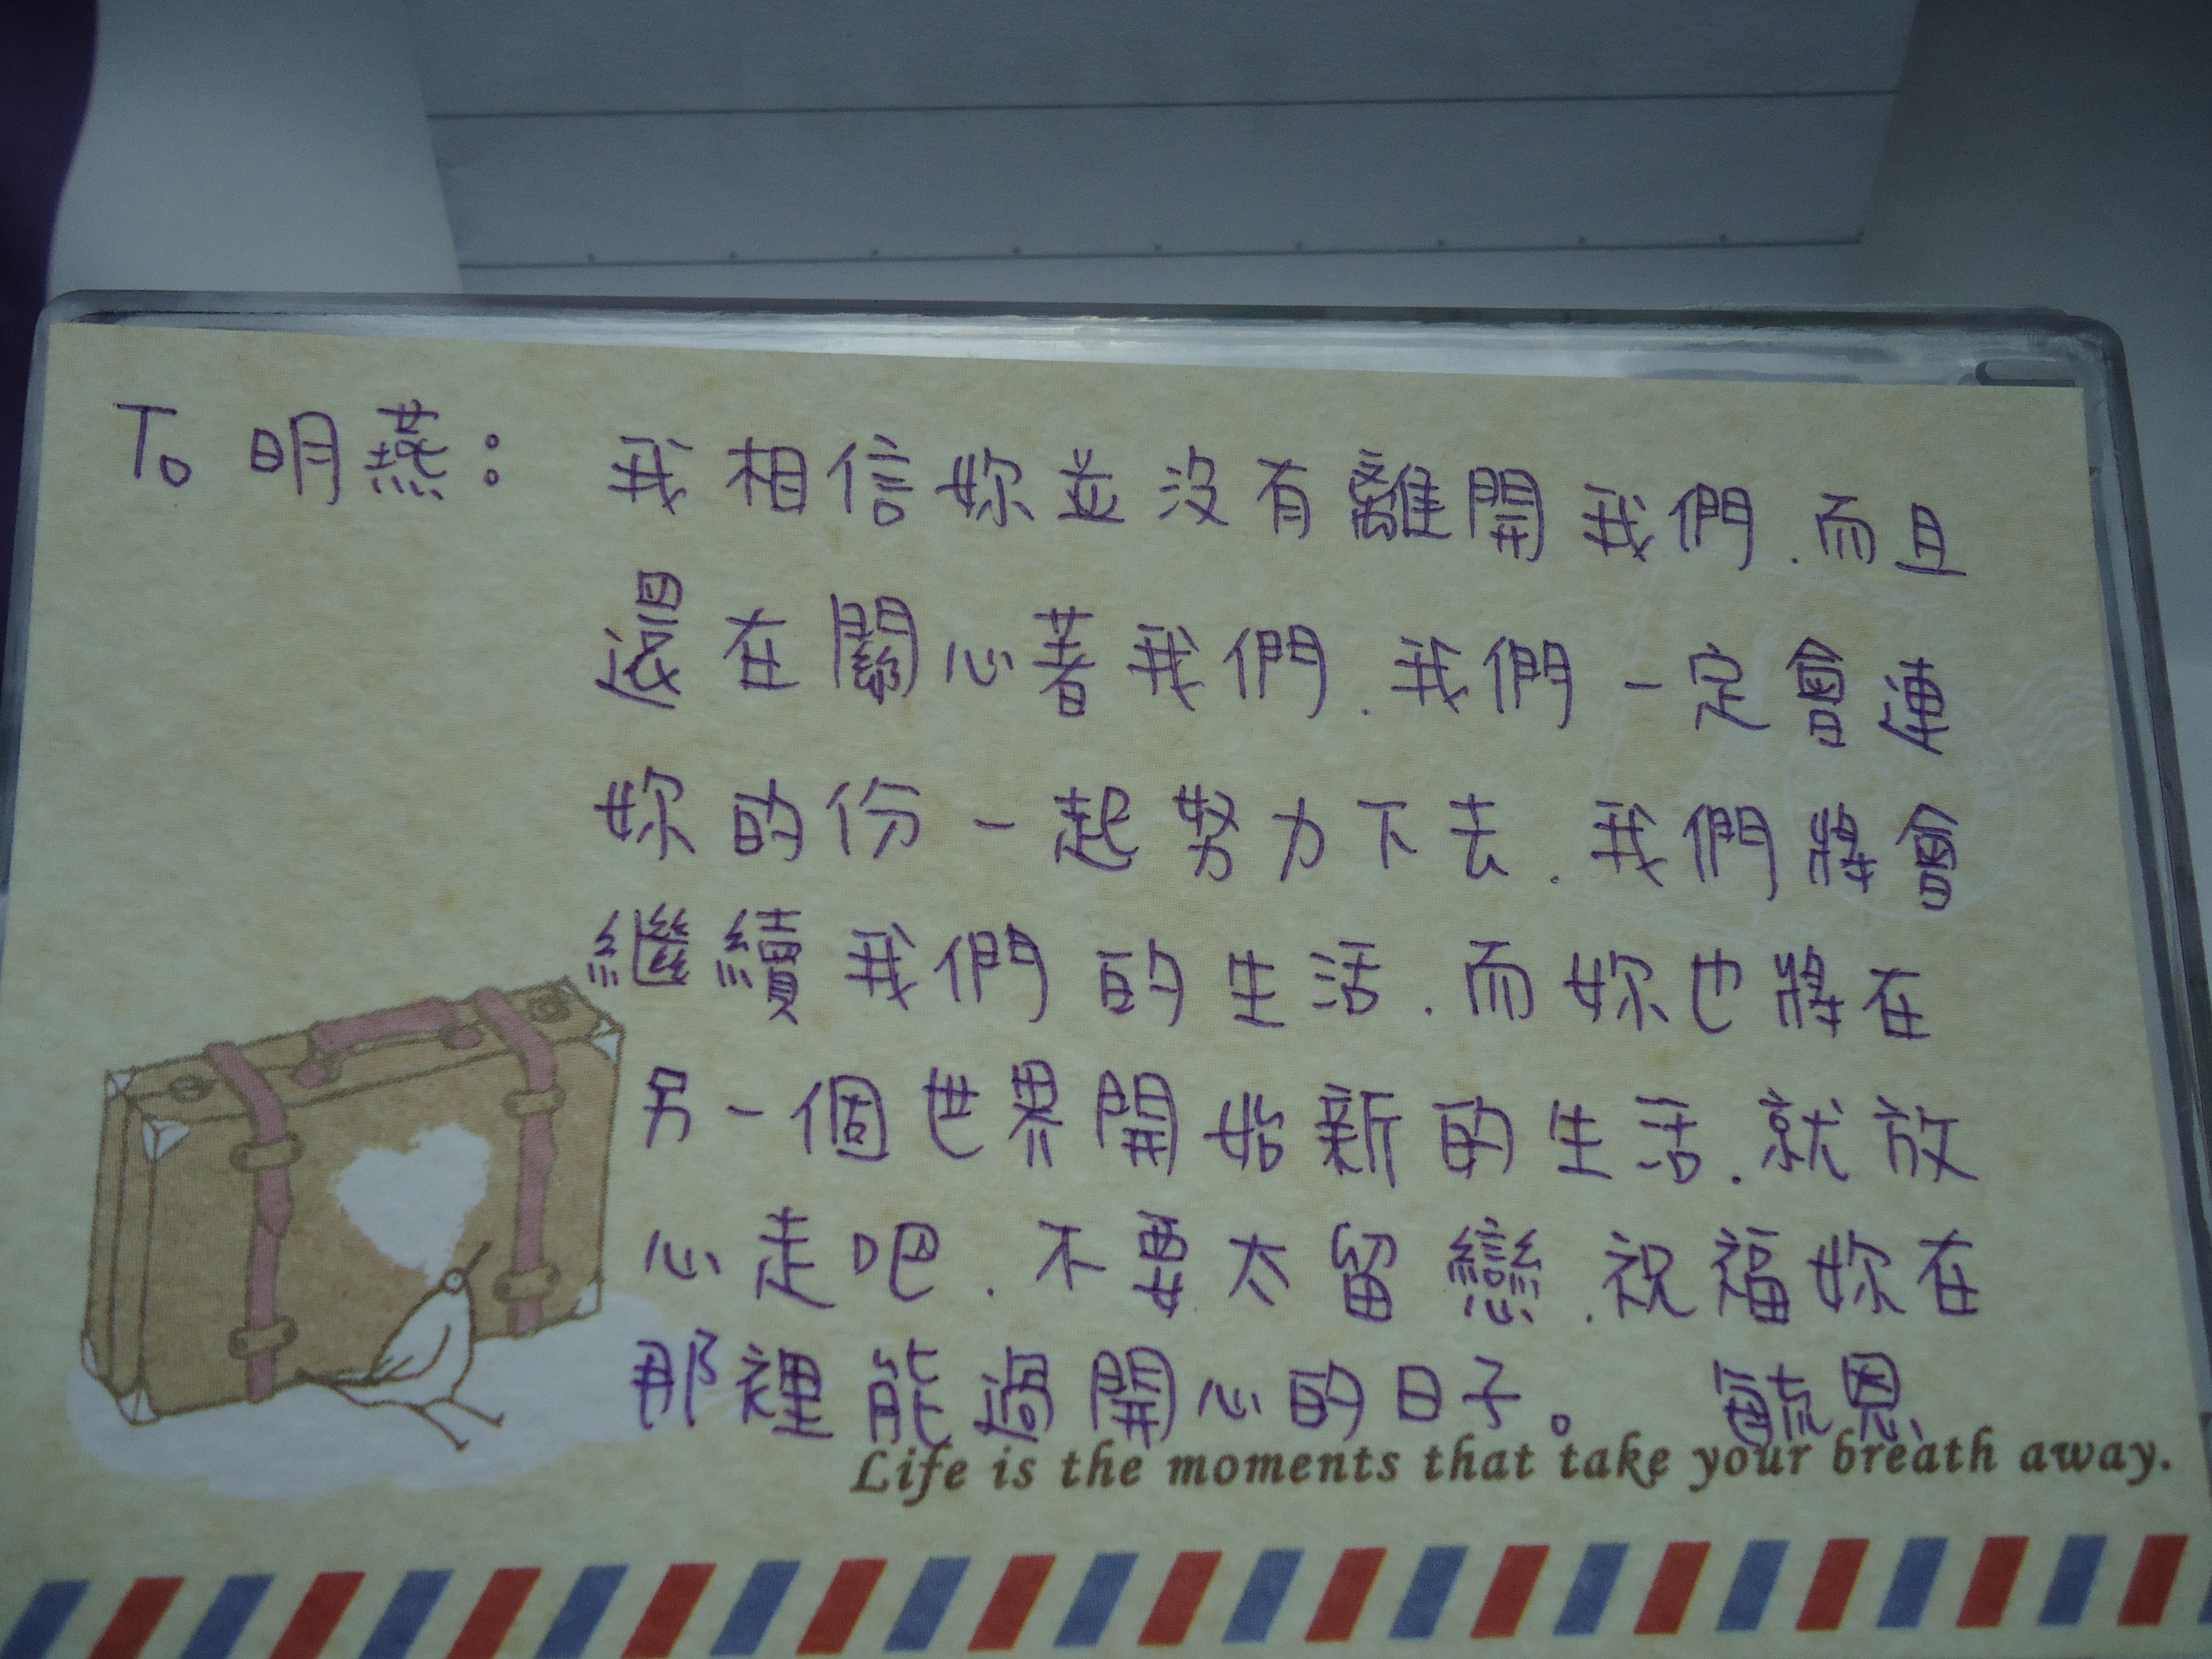 To 明燕： 我相信妳並沒有離開我們.而且
還在關心著我們.我們一定會連
妳的份一起努力下去.我們將會
繼續我們的生活.而妳也將在
另一個世界開始新的生活.就放
心走吧.不要太留戀.祝福妳在
那裡能過開心的日子。 毓恩
Life is the moments that take your breath away.